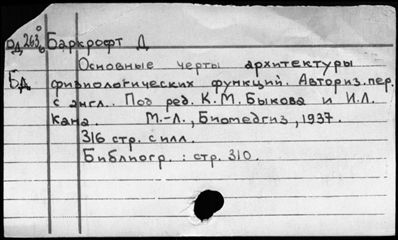 РД 263° Баркрофт Д
Основные черты архитектуры
БД физиологических функций. Авториз. пер.
с англ.. Под ред. К.М. Быкова и И.Л.
Кана. М.-Л., Биомедгиз, 1937.
316 стр. с илл.
Библиогр. : стр. 310.